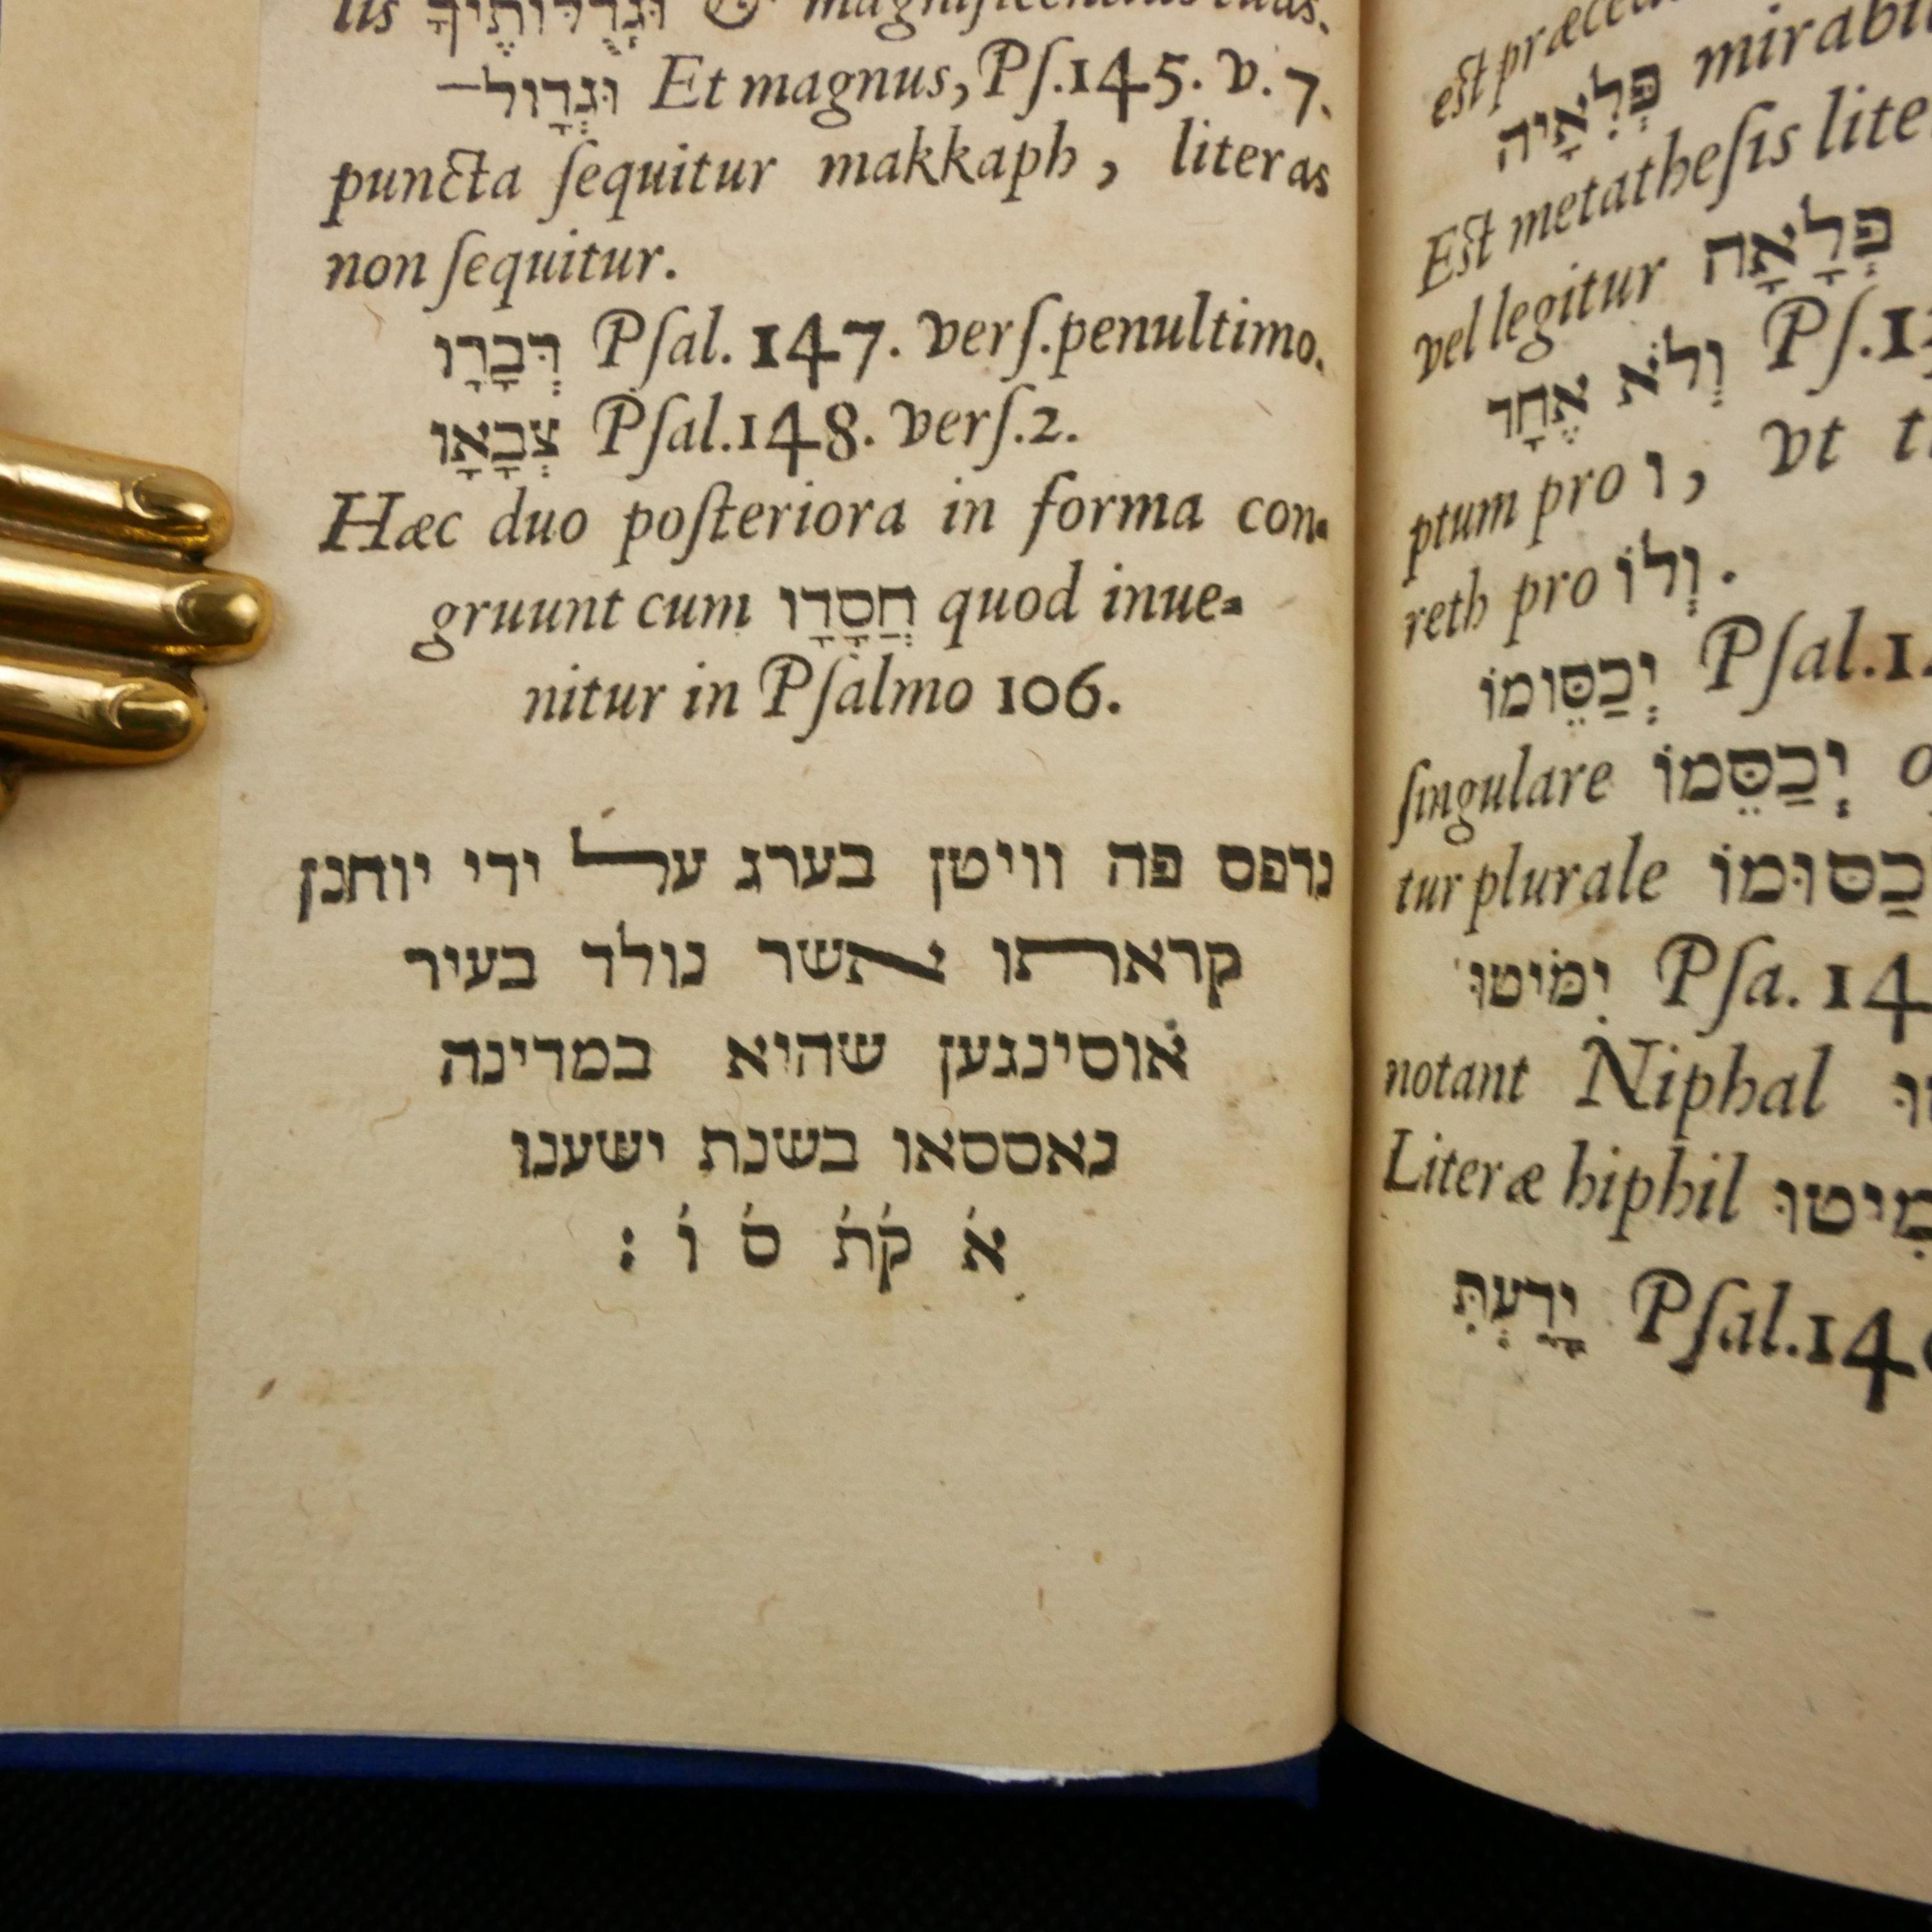 lis וּגְדֻלּוֹתֶיךָ & magnificentias tuas.
וּגְדָול־ Et magnus, Pſ.145. v. 7.
puncta ſequitur makkaph, literas
non ſequitur.
דְּבָרָו Pſal. 147. verſ.penultimo.
צְבָאָו Pſal.148. verſ.2.
Hæc duo poſteriora in forma con-
gruunt cum חֲסָדָו quod inue-
nitur in Pſalmo 106.
נדפס פה וויטן בערג על ידי יוחנן
קראתו אשר נולד בעיר
אוסינגען שהיא במדינה
נאססאו בשנת ישענו
א' ק'ת' ס' ו' :
mirabi
פְּלִאָיה
Eſt metatheſis lite
vel legitur פְּלָאָה
וְלֹא אֶחָד Pſ.1
ptum pro ו, vt t
reth pro וְלוֹ.
יְכַסֵּומוֹ Pſal.1
ſingulare יְכַסֵּמוֹ
tur plurale
יִמֹּיטוּ Pſa. 14
notant Niphal
Literæ hiphil
יָדַעְתִּ Pſal.14